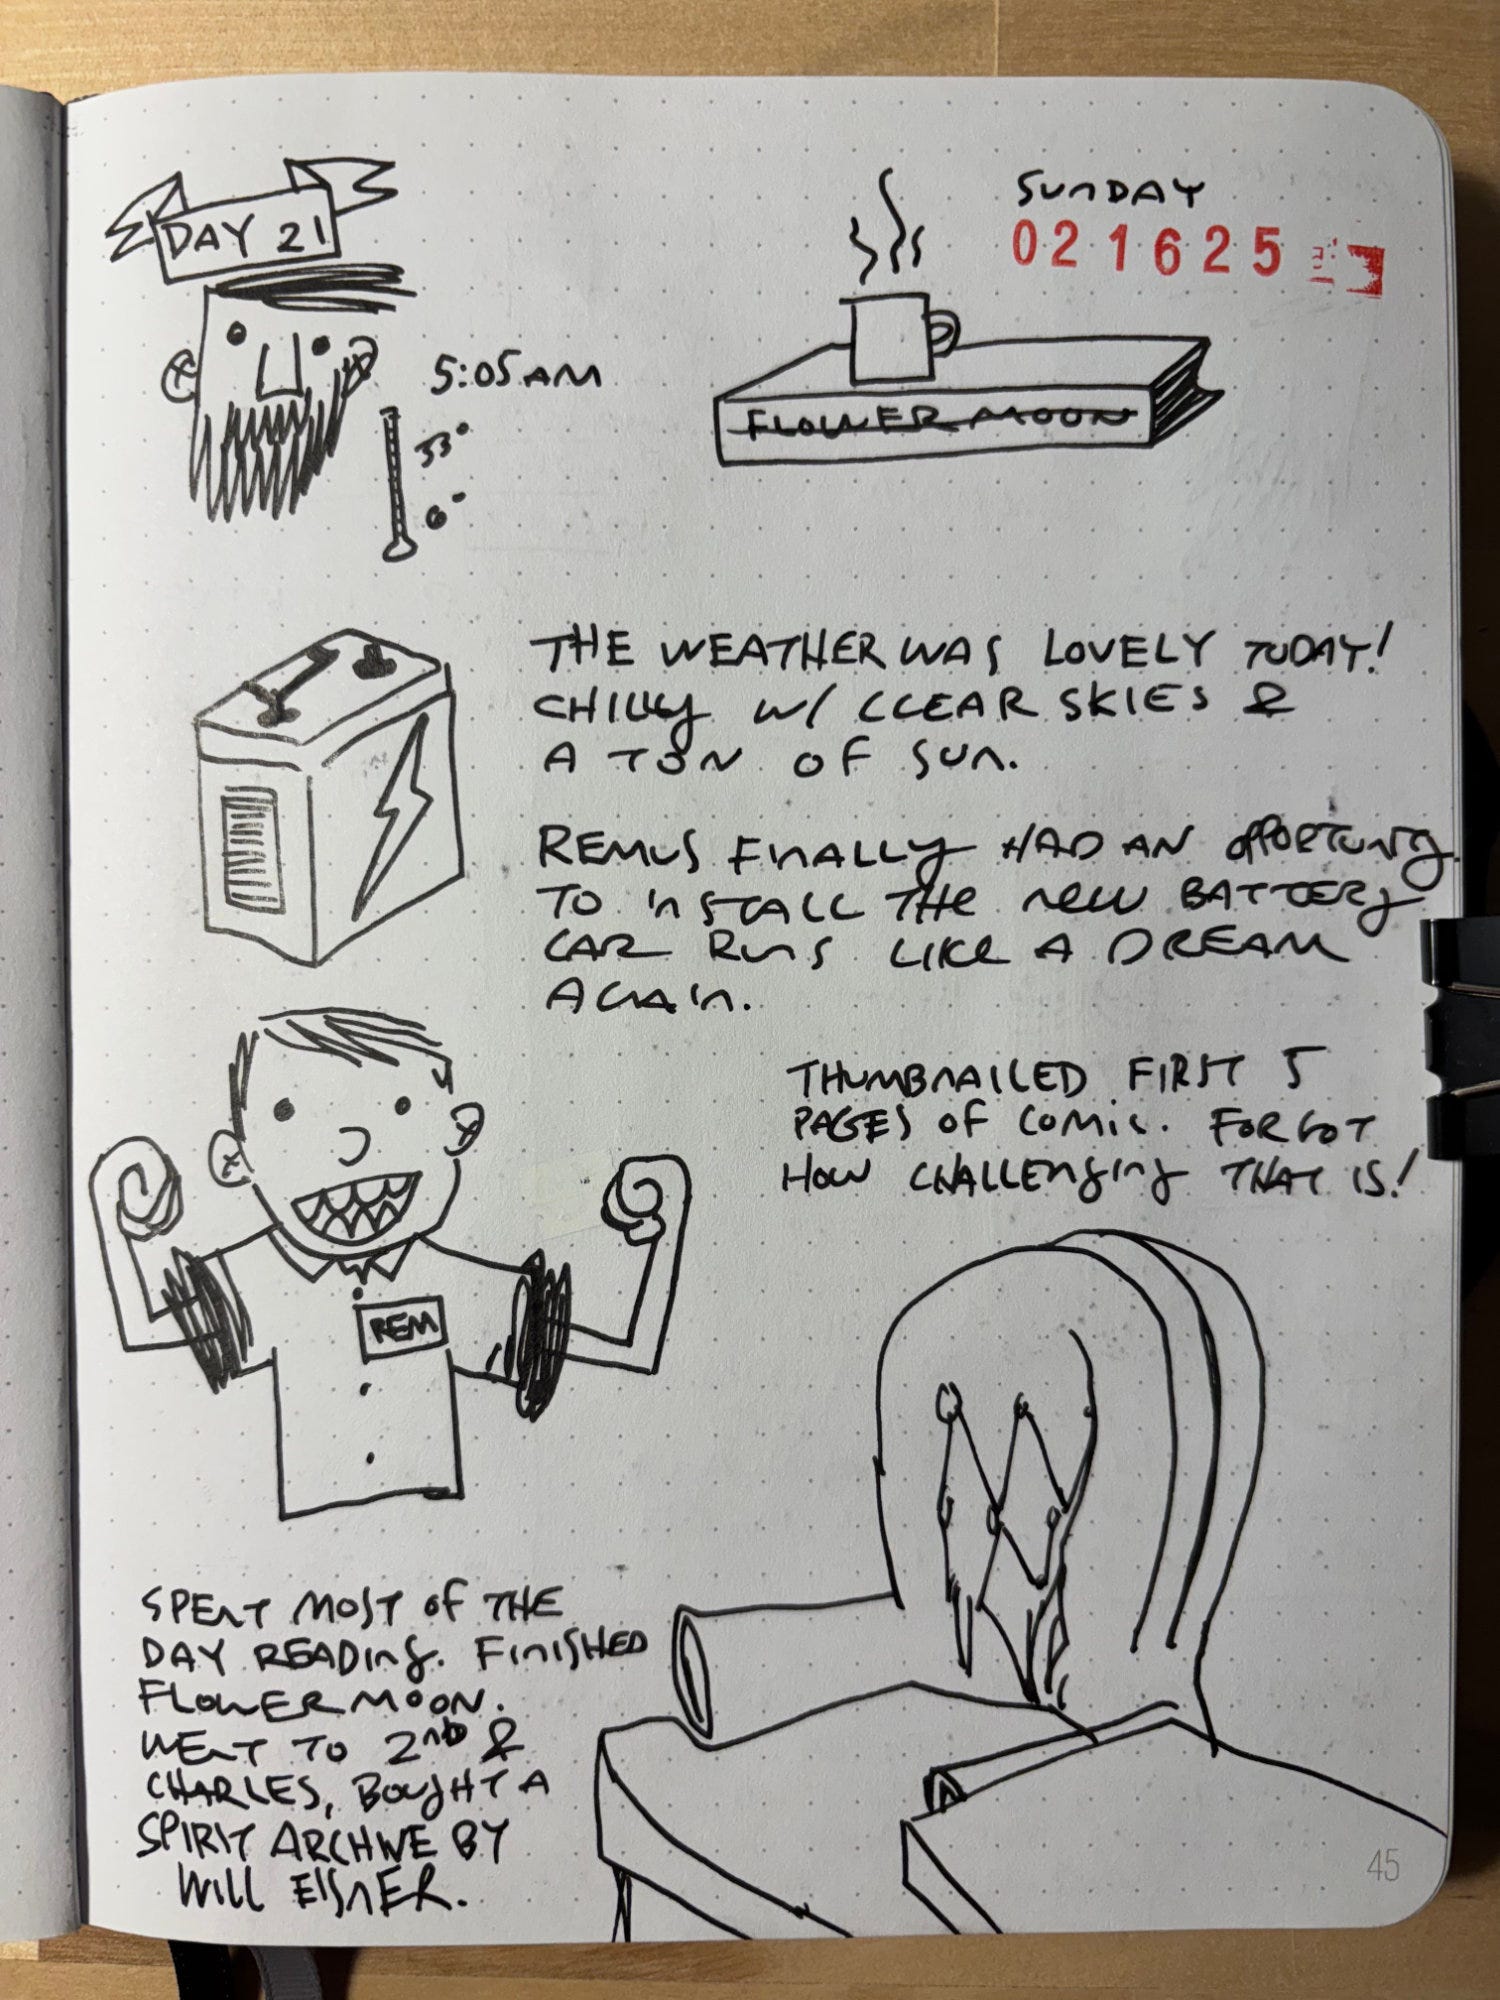 DAY 21
SUNDAY
021625
5:05AM
33°
6°
FLOWER MOON
THE WEATHER WAS LOVELY TODAY!
CHILLY W/ CLEAR SKIES &
A TON OF SUN.
REMUS FINALLY HAD AN
TO INSTALL THE NEW BATTERY
CAR RUNS LIKE A DREAM
AGAIN.
THUMBNAILED FIRST 5
PAGES OF COMIC. FORGOT
HOW CHALLENGING THAT IS!
REM
SPENT MOST OF THE
DAY READING. FINISHED
FLOWER MOON.
WENT TO 2ND &
CHARLES, BOUGHT A
SPIRIT ARCHIVE BY
WILL EISNER.
45